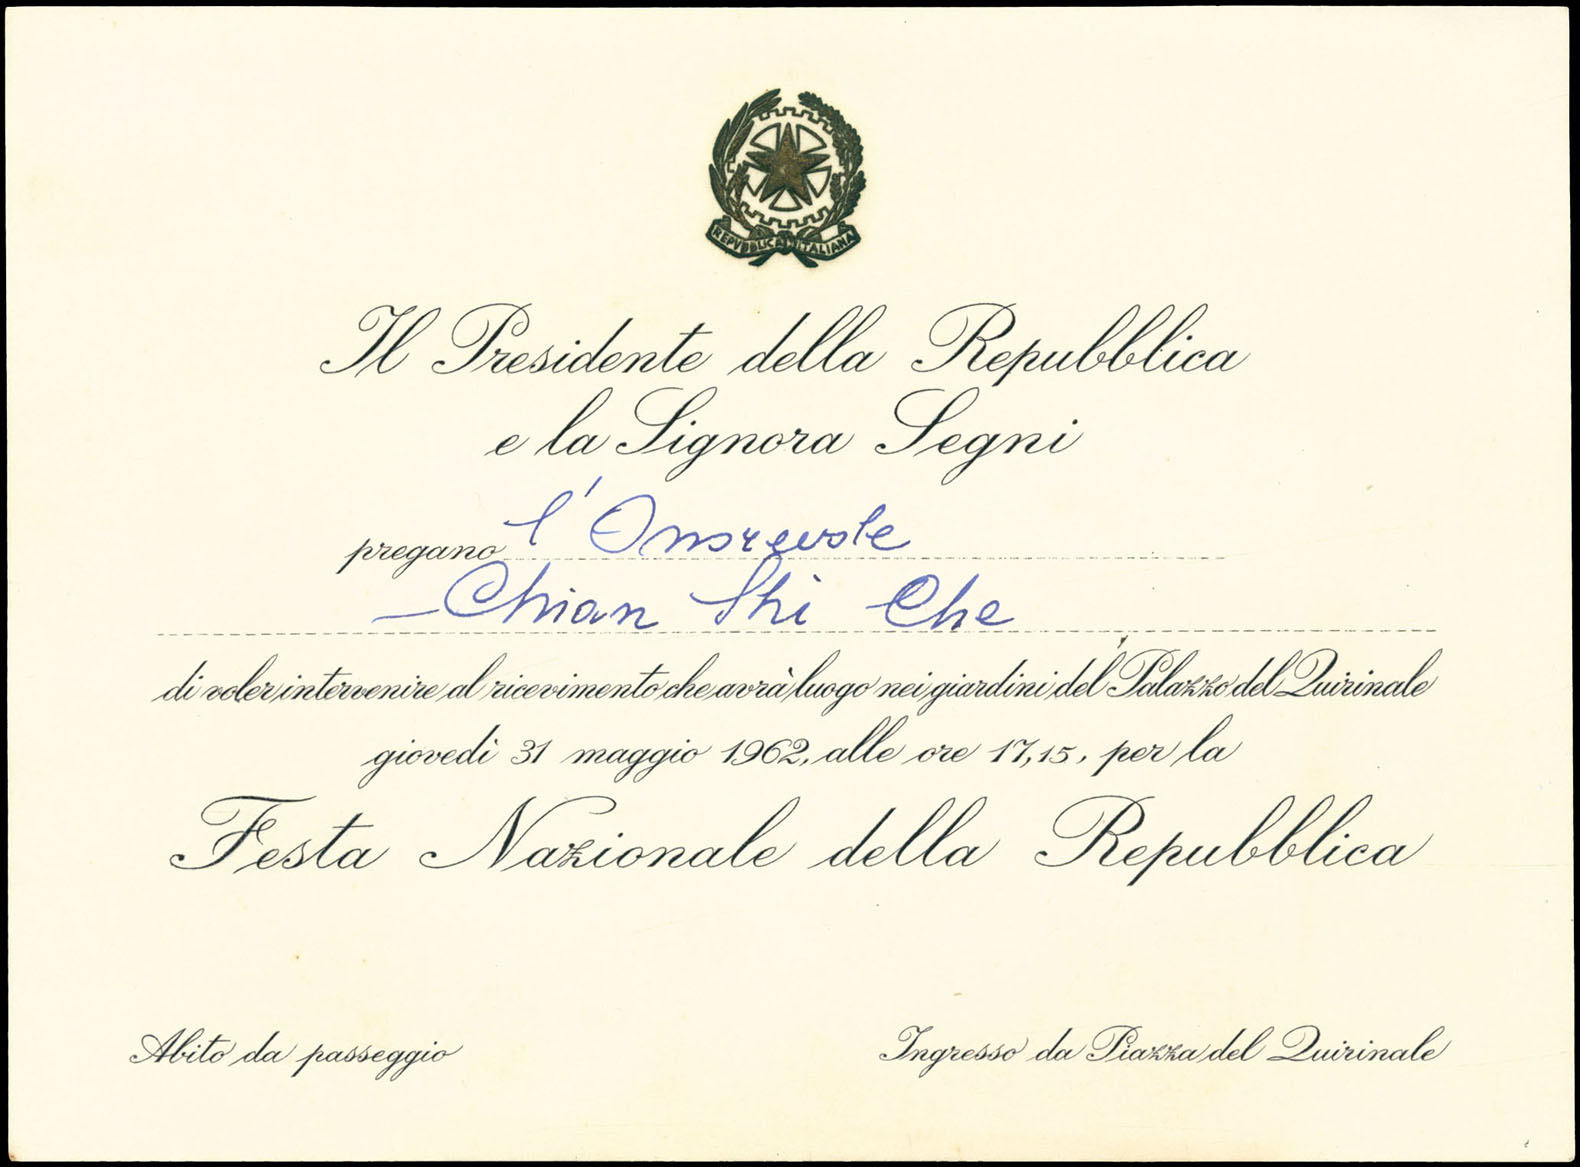 REPVBBLICA ITALIANA
Il Presidente della Repubblica
e la Signora Segni
pregano l'Onorevole
Chian Shi Che
di voler intervenire al ricevimento che avrà luogo nei giardini del Palazzo del Quirinale
giovedì 31 maggio 1962, alle ore 17,15, per la
Festa Nazionale della Repubblica
Abito da passeggio
Ingresso da Piazza del Quirinale